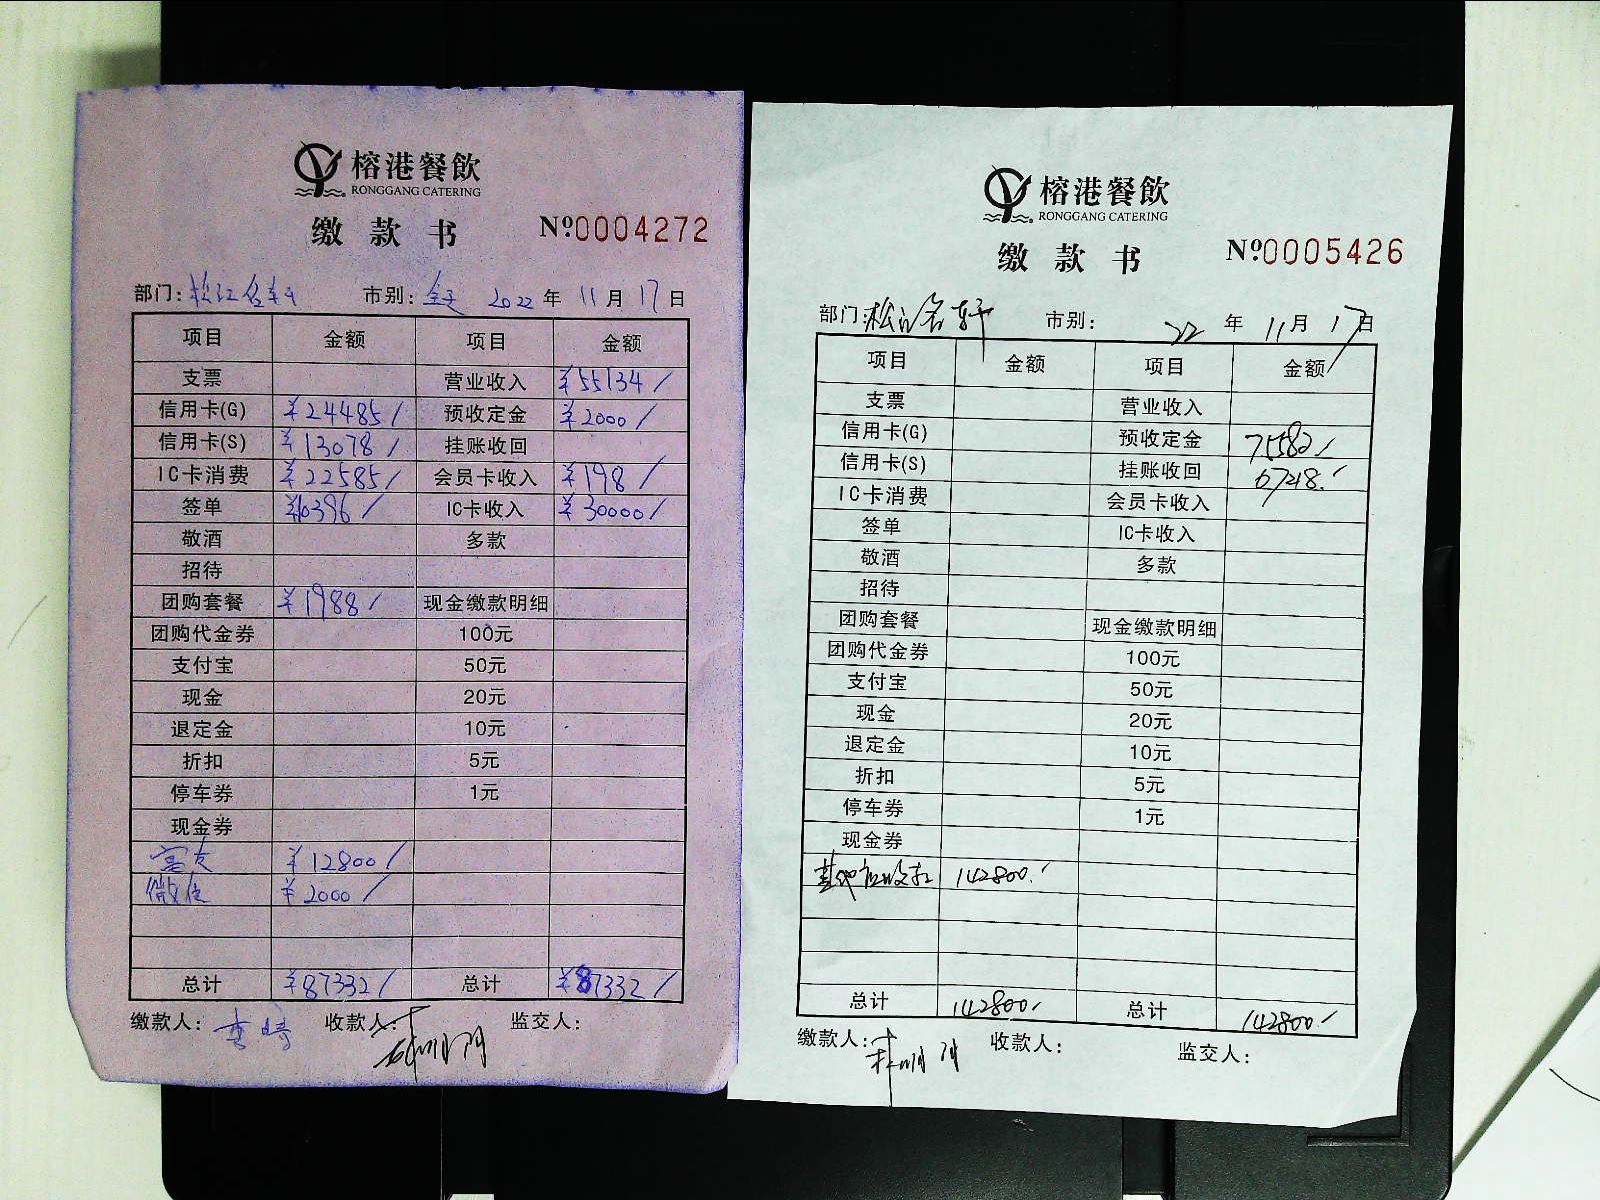 榕港餐飲
RONGGANG CATERING
缴款书 №0004272
部门:松江名轩 市别:全天 2022年11月17日
项目 金额 项目 金额
支票 营业收入 ¥55134/
信用卡(G) ¥24485/ 预收定金 ¥2000/
信用卡(S) ¥13078/ 挂账收回
IC卡消费 ¥22585/ 会员卡收入 ¥198/
签单 ¥10396/ IC卡收入 ¥30000/
敬酒 多款
招待
团购套餐 ¥1988/ 现金缴款明细
团购代金券 100元
支付宝 50元
现金 20元
退定金 10元
折扣 5元
停车券 1元
现金券
¥12800/
微信 ¥2000/
总计 ¥87332/ 总计 ¥87332/
缴款人: 收款人: 监交人:
榕港餐飲
RONGGANG CATERING
缴款书 №0005426
部门:松江名轩 市别: 22年11月17日
项目 金额 项目 金额
支票 营业收入
信用卡(G) 预收定金 75582/
信用卡(S) 挂账收回 67218./
IC卡消费 会员卡收入
签单 IC卡收入
敬酒 多款
招待
团购套餐 现金缴款明细
团购代金券 100元
支付宝 50元
现金 20元
退定金 10元
折扣 5元
停车券 1元
现金券
142800./
总计 142800./ 总计 142800./
缴款人: 收款人: 监交人: